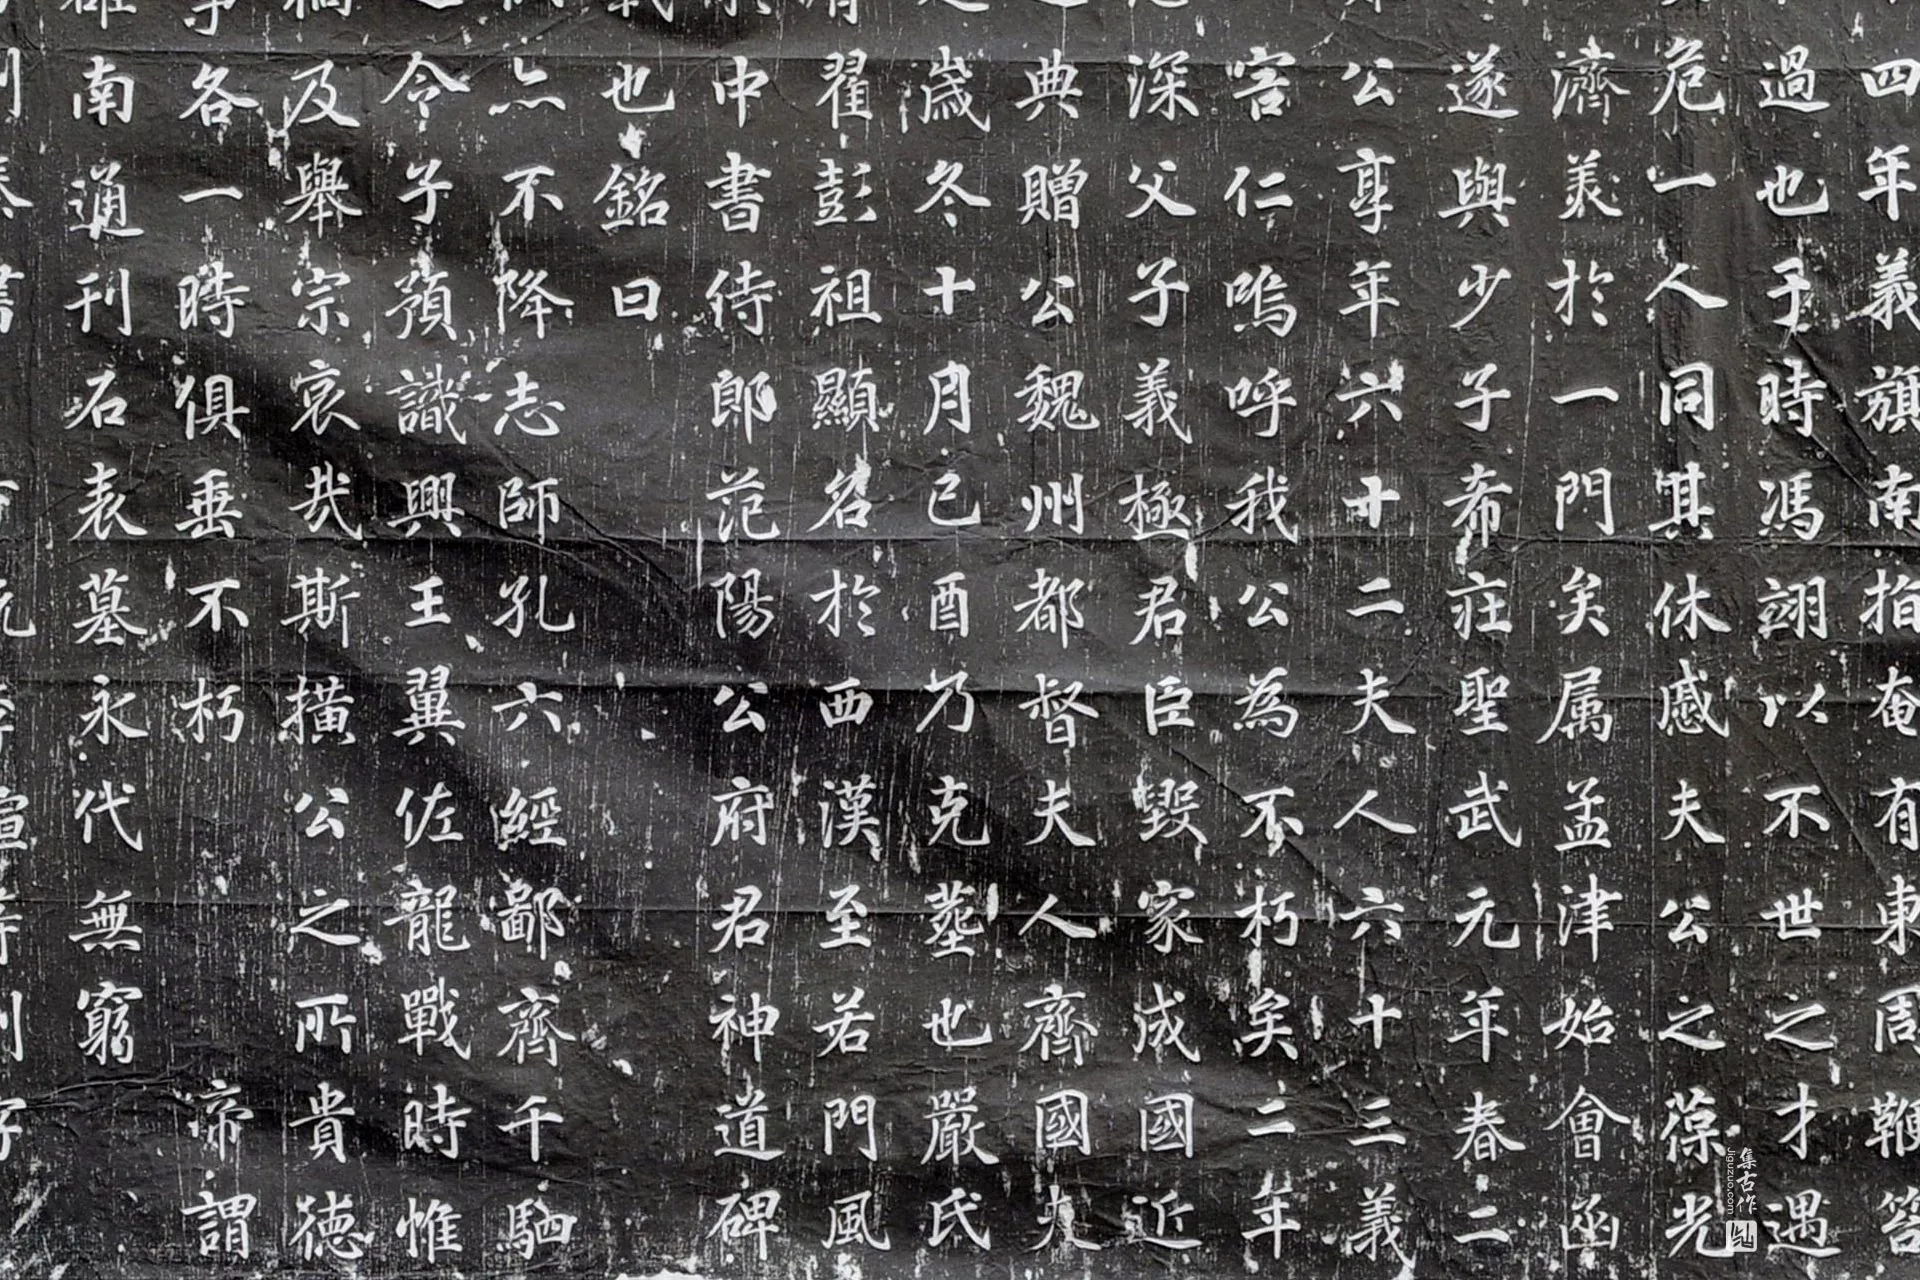 四年義旗南指奄有東周鞭笞
過也于時馮翊以不世之才遇
危一人同其休慼夫公之葆光
濟美於一門矣属孟津始會函
遂與少子希莊聖武元年春二
公享年六十二夫人六十三義
害仁嗚呼我公為不朽矣二年
深父子義極君臣毀家成國近
典贈公魏州都督夫人齊國夫
歲冬十月己酉乃克葬也嚴氏
翟彭祖顯名於西漢至若門風
中書侍郎范陽公府君神道碑
也銘曰
亦不降志師孔六經鄙齊千駟
令子預識興王翼佐龍戰時惟
及舉宗哀哉斯擴公之所貴德
各一時俱垂不朽 帝謂
南通刊石表墓永代無窮
集古作
Jiguzuo.com